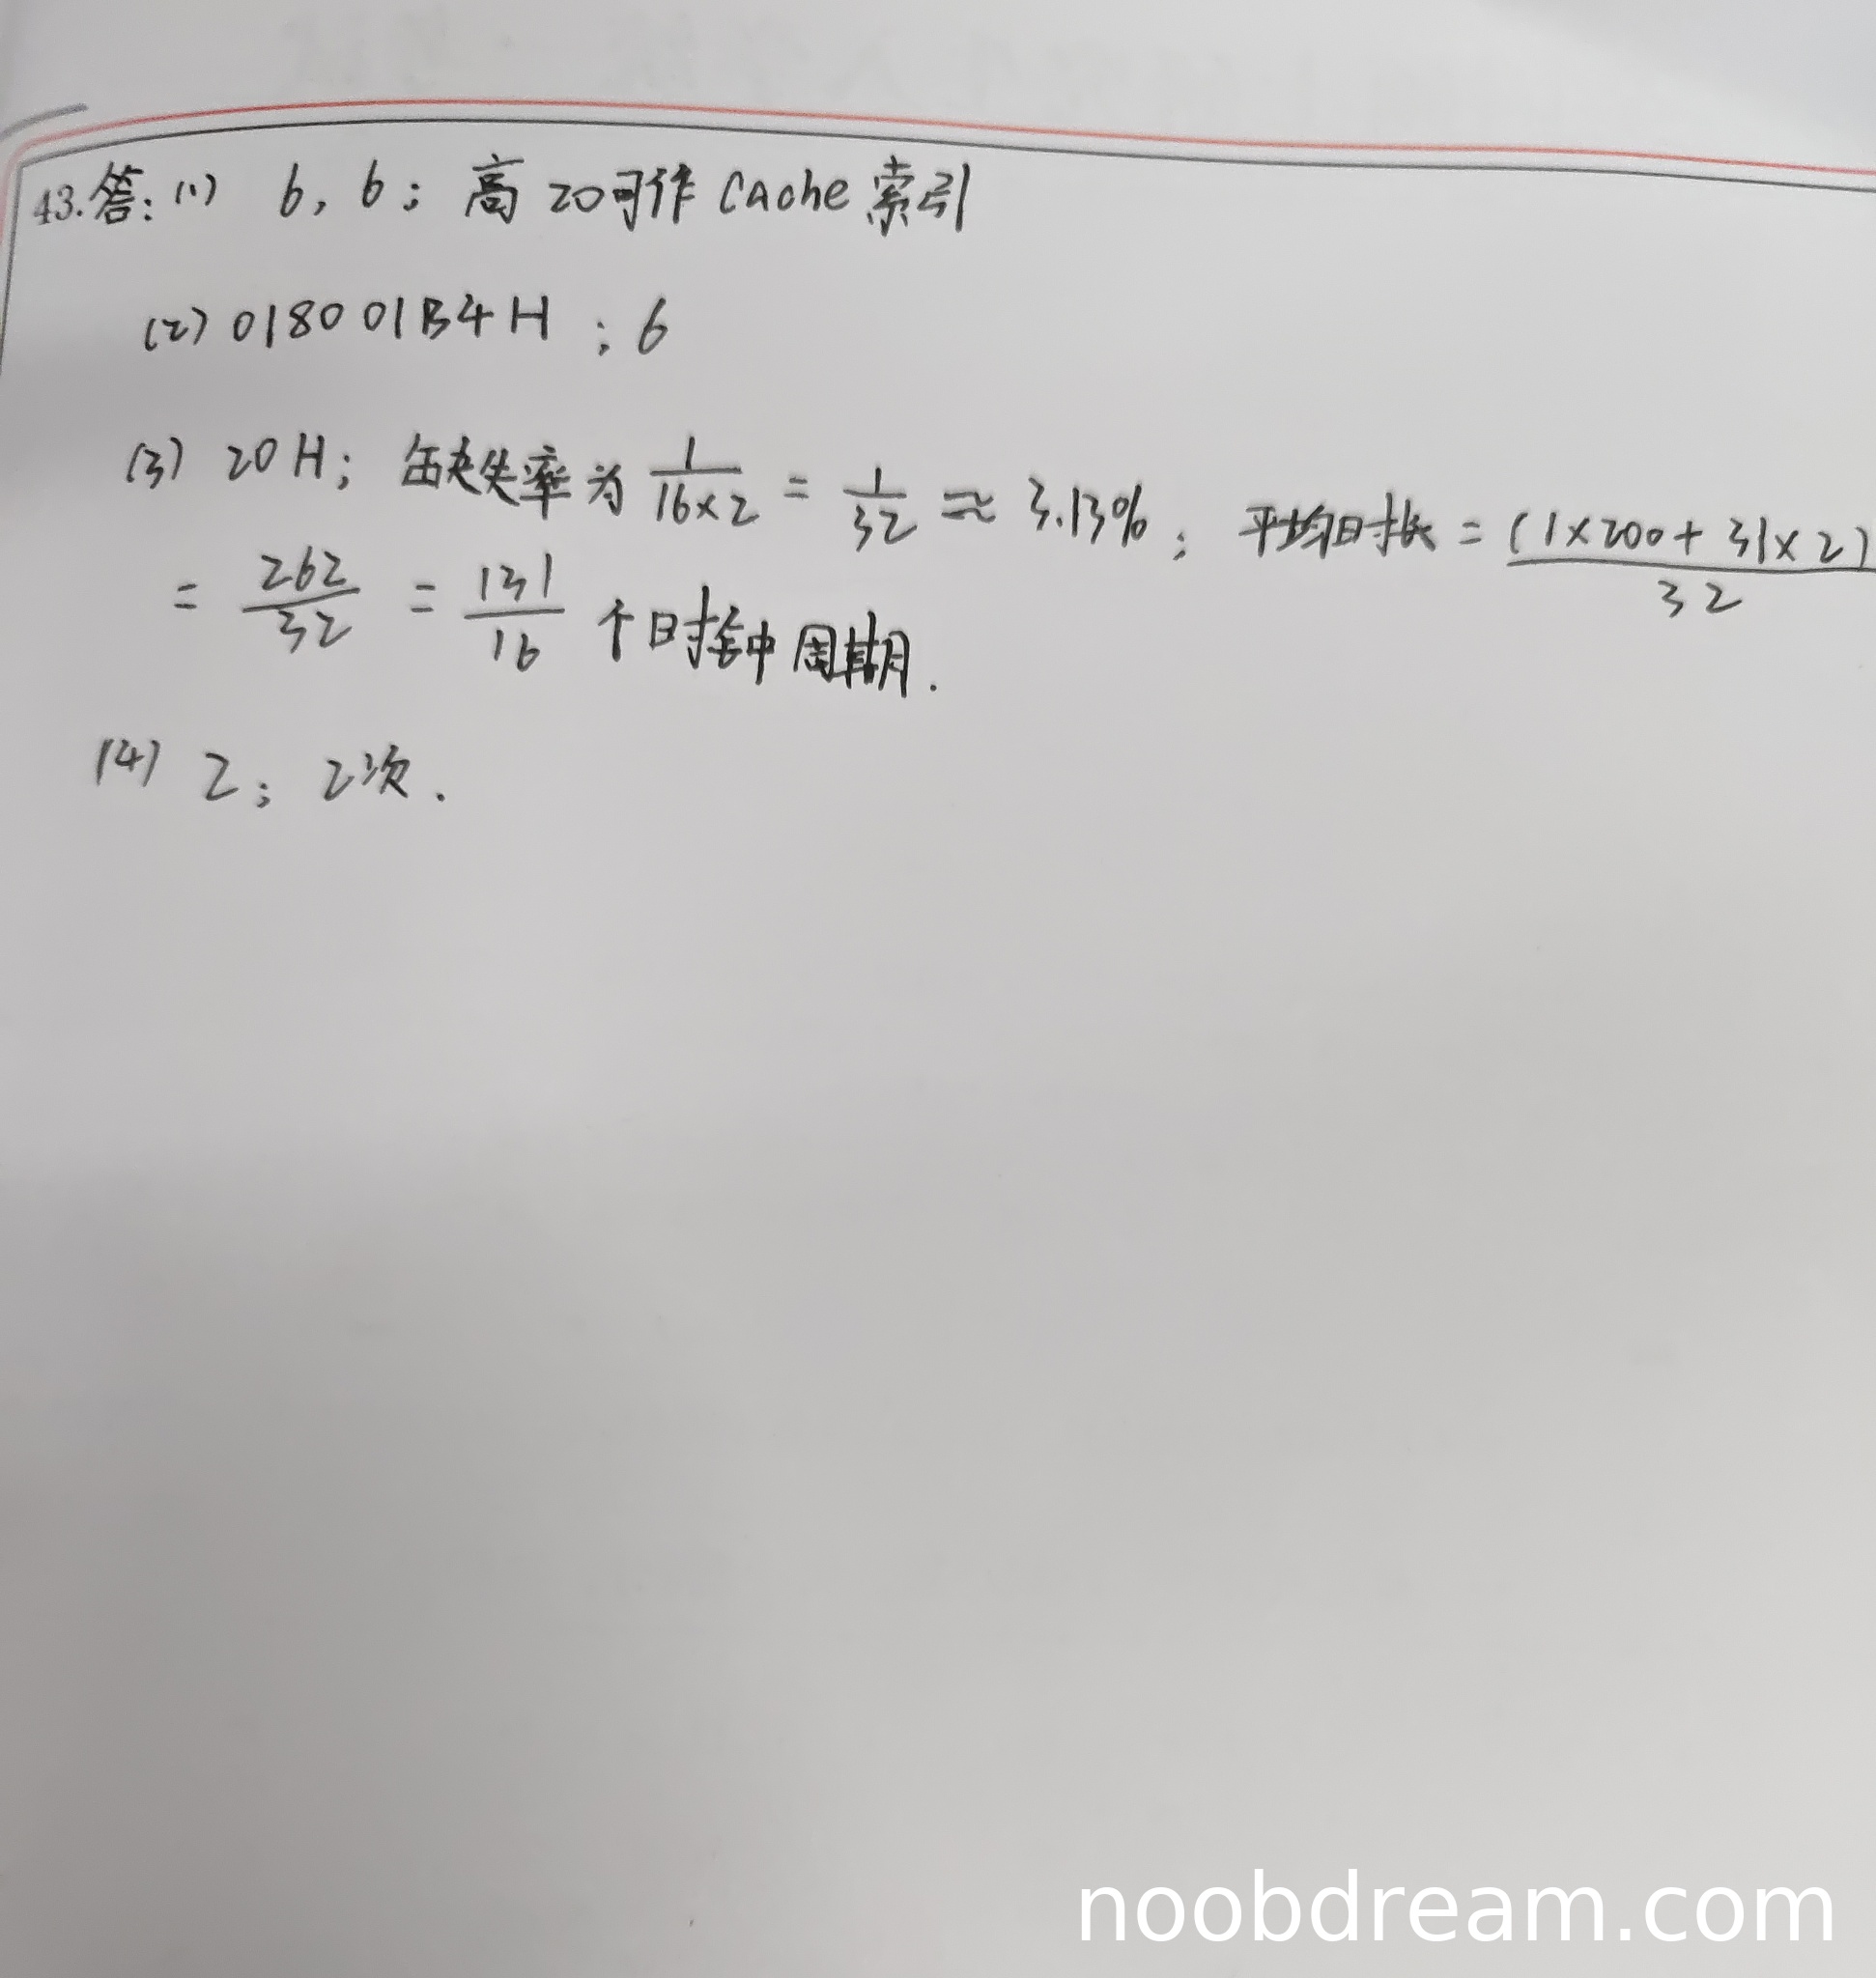 43.答:(1) 6, 6; 高20可作 Cache 索引
(2) 018001B4H ; 6
(3) 20H; 缺失率为 1/(16×2) = 1/32 ≈ 3.13% ; 平均时长 = (1×200+31×2)/32
= 262/32 = 131/16 个时钟周期.
(4) 2; 2次.
noobdream.com